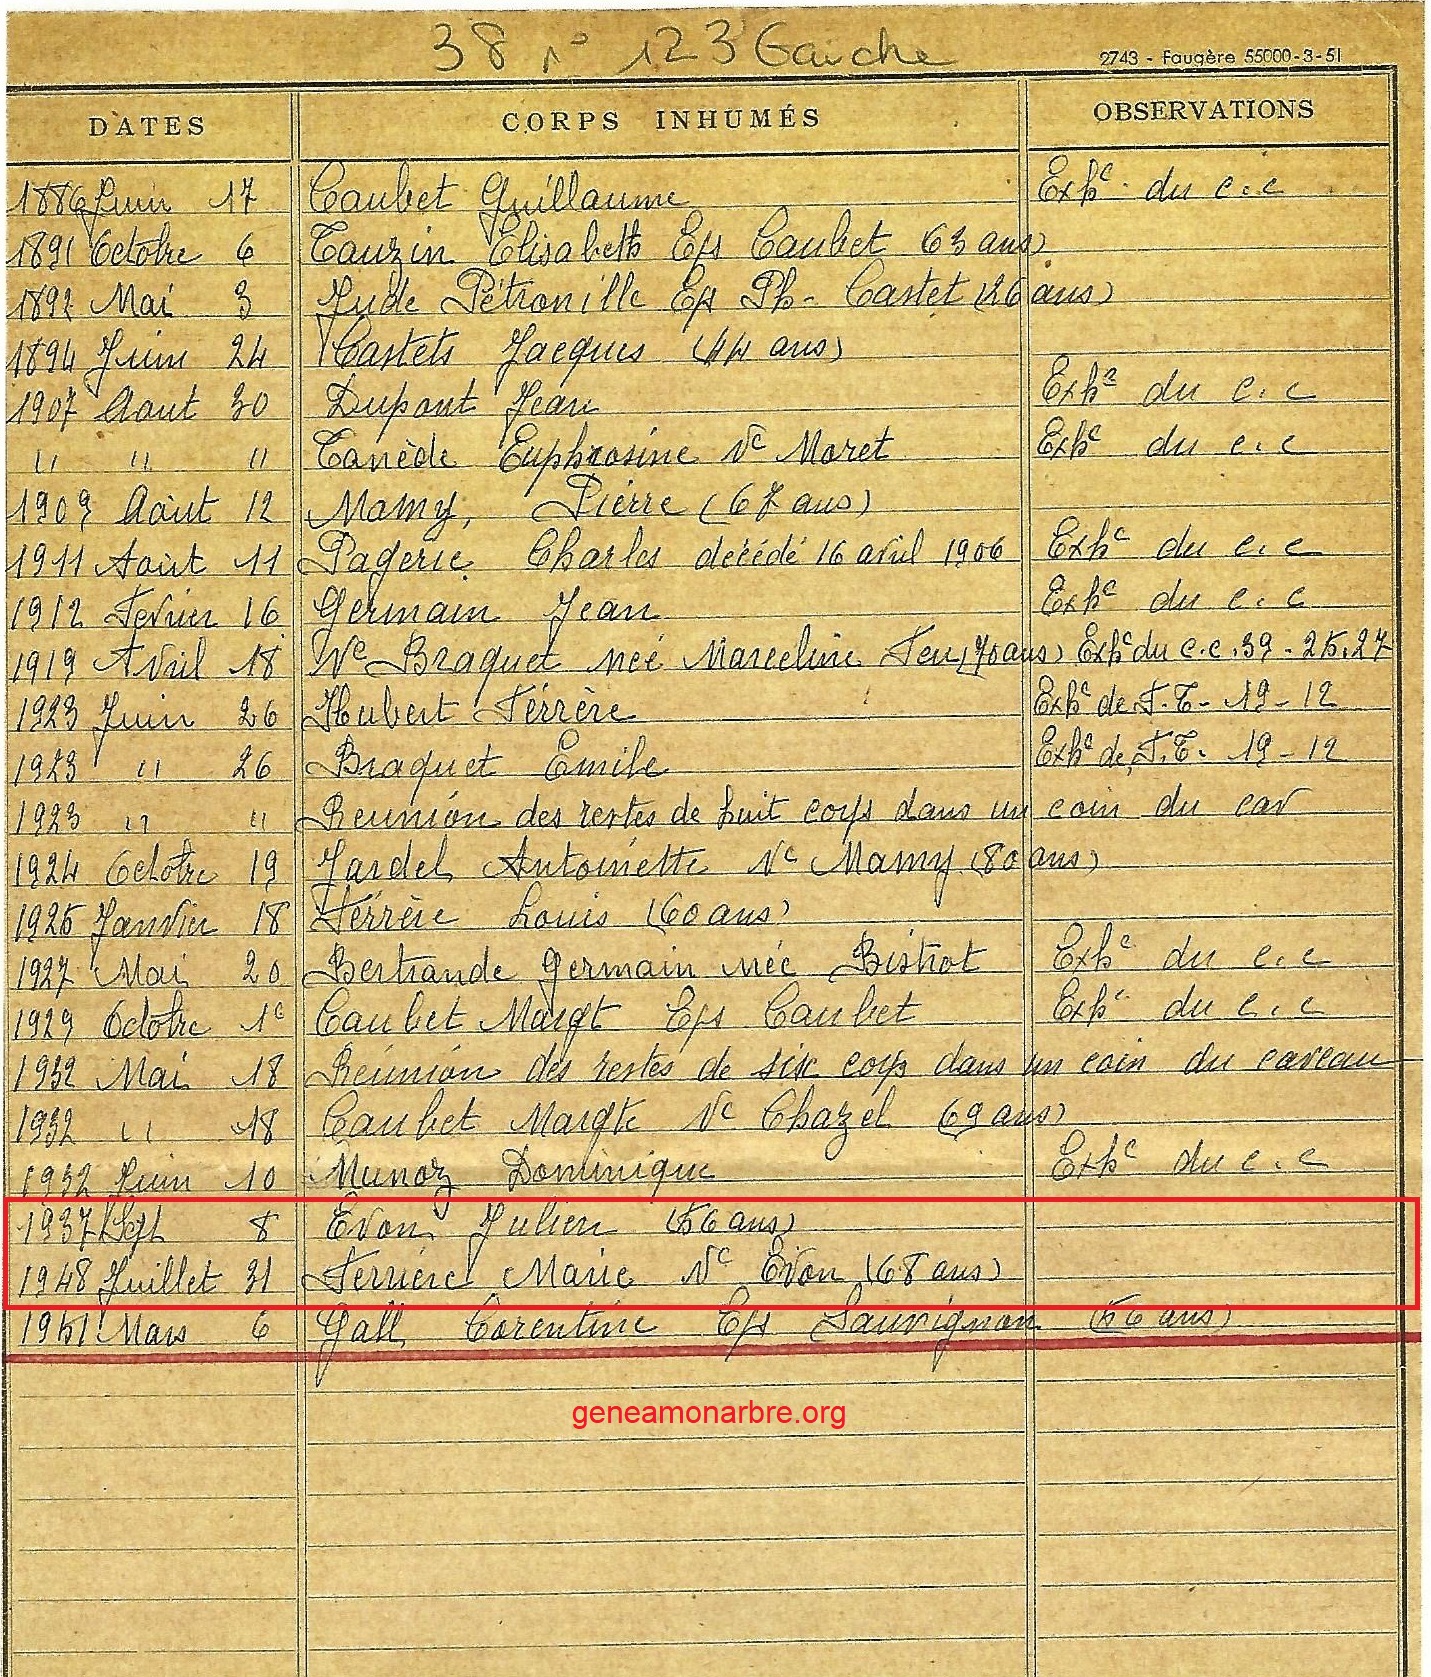 38 n° 123 Gauche
2743 - Faugère 55000-3-51
DATES CORPS INHUMÉS OBSERVATIONS
1886 Juin 17 Caubet Guillaume Exhé du c.c
1891 Octobre 6 Tauzin Elisabeth Eps Caubet (63 ans)
1892 Mai 3 Jude Pétronille Eps Ph- Castet (26 ans)
1894 Juin 24 Castets Jacques (44 ans)
1907 Aout 30 Dupont Jean Exhé du c.c
" " " Tanède Euphrosine Ve Moret Exhe du c.c
1909 Août 12 Mamy, Pierre (67 ans)
1911 Août 11 Pagerie Charles décédé 16 avril 1906 Exhe du c.c
1912 Fevrier 16 Germain Jean Exhe du c.c
1919 Avril 18 Ve Braquet neé Marceline Feu (70 ans) Exhe du c.c. 39 - 25.27
1923 Juin 26 Hubert Férrère Exhe de T.T- 19-12
1923 " 26 Braquet Emile Exhe de T.T. 19-12
1923 " " Reunion des restes de huit corps dans un coin du cav
1924 Octobre 19 Jardel Antoinette Ve Mamy (80 ans)
1925 Janvier 18 Férrère Louis (60 ans)
1927 Mai 20 Bertrande Germain neé Bistrot Exhe du c.c
1929 Octobre 1e Caubet Margt Eps Caubet Exhe du c.c
1932 Mai 18 Réunion des restes de six corps dans un coin du caveau
1932 " 18 Caubet Margte Ve Chazel (69 ans)
1932 Juin 10 Munoz Dominique Exhe du c.c
1937 Sept 8 Evon Julien (56 ans)
1948 Juillet 31 Ferrière Marie Ve Evon (68 ans)
1951 Mars 6 Gall Corentine Eps Sauvignon (56 ans)
geneamonarbre.org